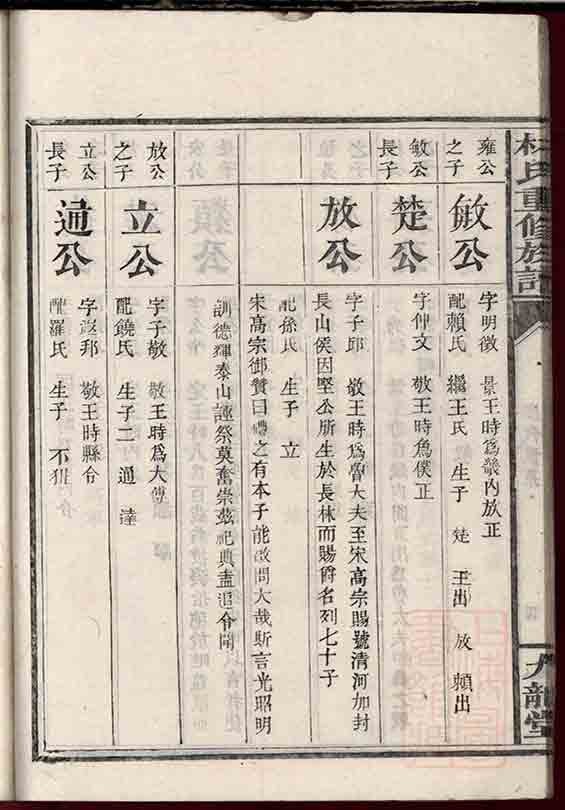 林氏重修族譜
九龍堂
雍公
之子
敏公
字明徵　景王時為畿內放正
配賴氏　繼王氏　生子　楚　王出　放　賴出
敏公
長子
楚公
字仲文　敬王時為僕正
放公
字子邱　敬王時為魯大夫至宋高宗賜號清河加封
長山侯因堅公所生於長林而賜爵名列七十子
配孫氏　生子　立
宋高宗御贊曰禮之有本子能啟問大哉斯言光昭明
訓德輝泰山誣祭莫奮崇茲祀典盍追令聞
放公
之子
立公
字子敬　敬王時為大傅
配饒氏　生子二　通　達
立公
長子
通公
字邦　敬王時縣令
配羅氏　生子　不狃